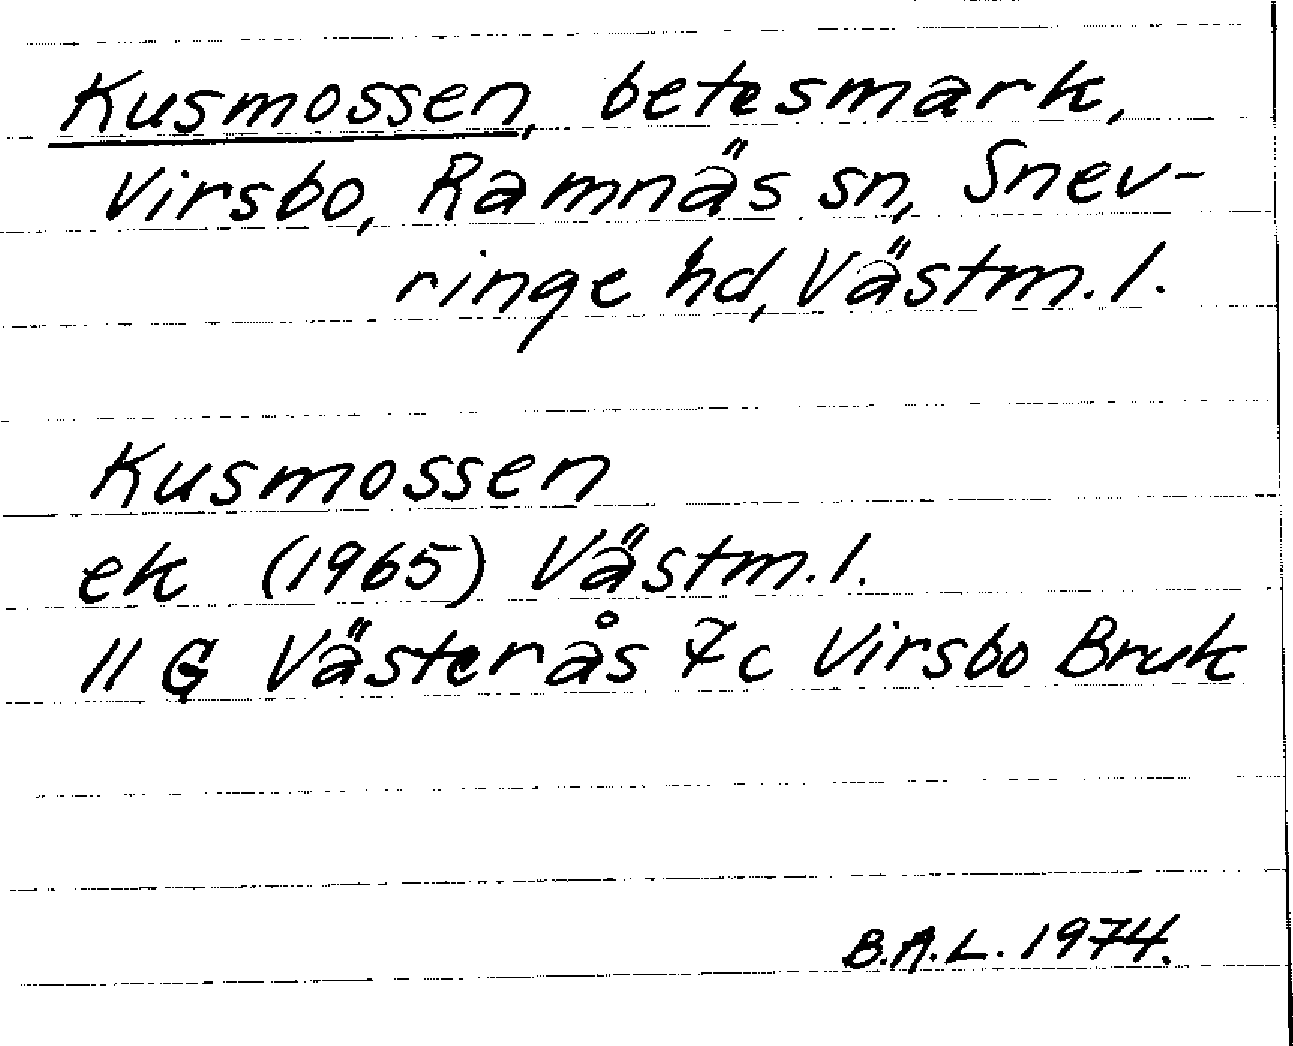 Kusmossen, betesmark,
Virsbo, Ramnäs sn, Snev-
ringe hd, Västm. l.
Kusmossen
ek (1965) Västm. l.
11 G Västerås 7c Virsbo Bruk
B.A.L. 1974.